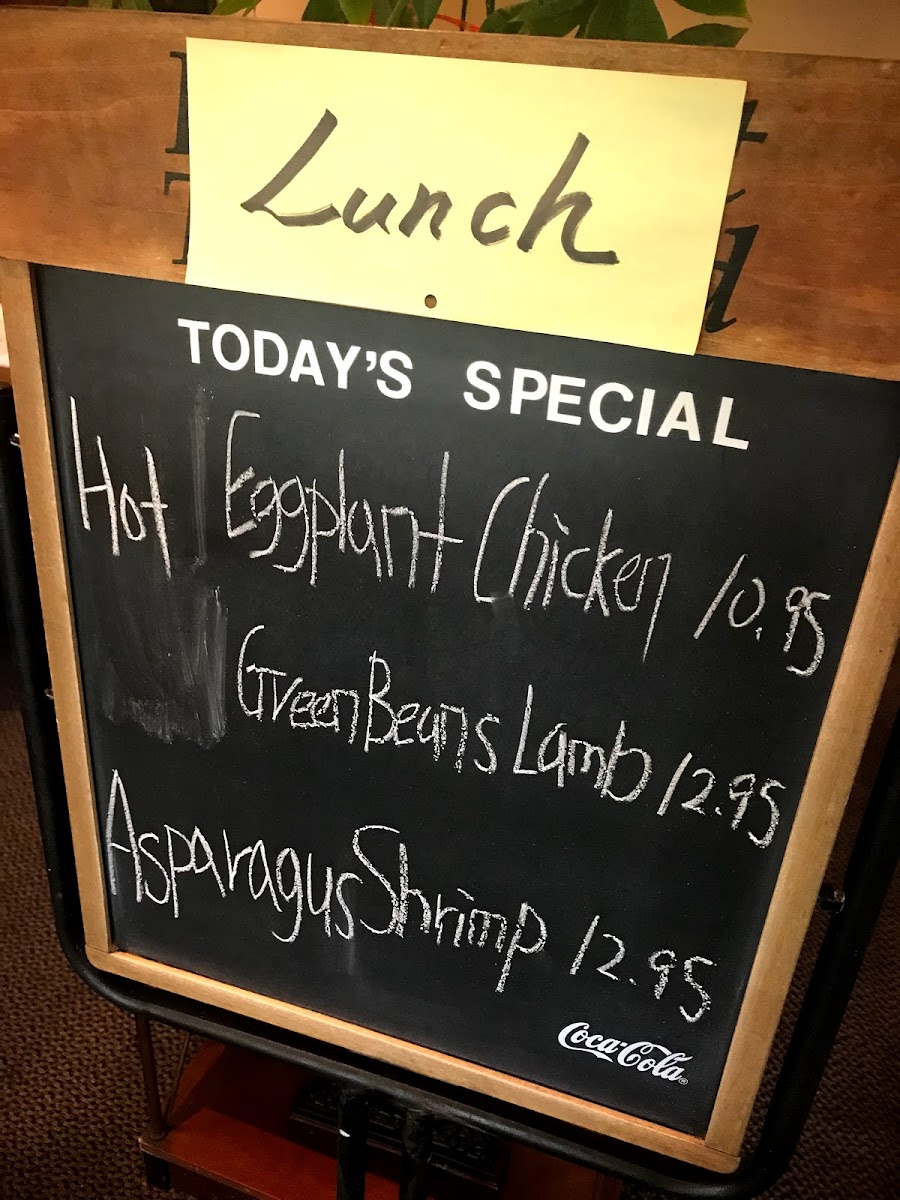 Lunch
TODAY'S SPECIAL
Hot Eggplant Chicken 10.95
Green Beans Lamb 12.95
Asparagus Shrimp 12.95
Coca-Cola®